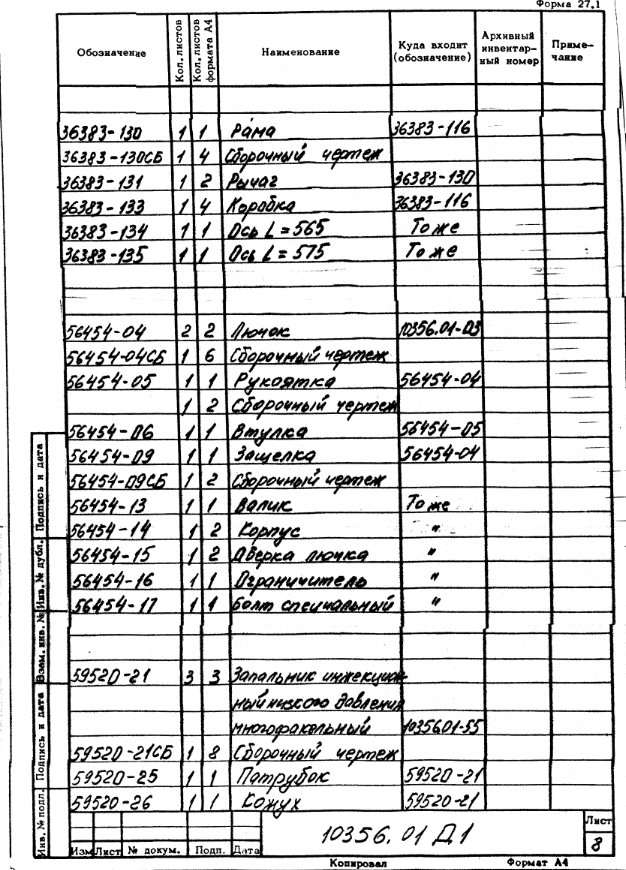 Форма 27.1
Обозначение Кол. листов Кол. листов формата А4 Наименование Куда входит (обозначение) Архивный инвентарный номер Примечание
36383-130 1 1 Рама 36383-116
36383-130СБ 1 4 Сборочный чертеж
36383-131 1 2 Рычаг 36383-130
36383-133 1 4 Коробка 36383-116
36383-134 1 1 Ось L=565 То же
36383-135 1 1 Ось L=575 То же
56454-04 2 2 Лючок 10356.01-03
56454-04СБ 1 6 Сборочный чертеж
56454-05 1 1 Рукоятка 56454-04
1 2 Сборочный чертеж
56454-06 1 1 Втулка 56454-05
56454-09 1 1 Защелка 56454-04
56454-09СБ 1 2 Сборочный чертеж
56454-13 1 1 Валик То же
56454-14 1 2 Корпус "
56454-15 1 2 Дверка лючка "
56454-16 1 1 Ограничитель "
56454-17 1 1 Болт специальный "
59520-21 3 3 Запальник инжекцион-
ный низкого давления
многофакельный 10356.01-55
59520-21СБ 1 8 Сборочный чертеж
59520-25 1 1 Патрубок 59520-21
59520-26 1 1 Кожух 59520-21
Инв. № подл. Подпись и дата Взам. инв. № Инв. № дубл. Подпись и дата
10356.01 Д1
Лист
8
Изм Лист № докум. Подп. Дата
Копировал Формат А4